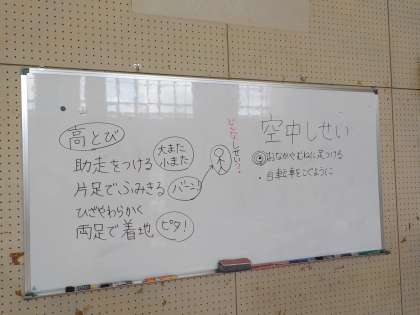 高とび
助走をつける 大また 小また
片足でふみきる バーン!
ひざやわらかく
両足で着地 ピタ!
どんなしせい?
空中しせい
おなかやむねに足つける
・自転車をこぐように